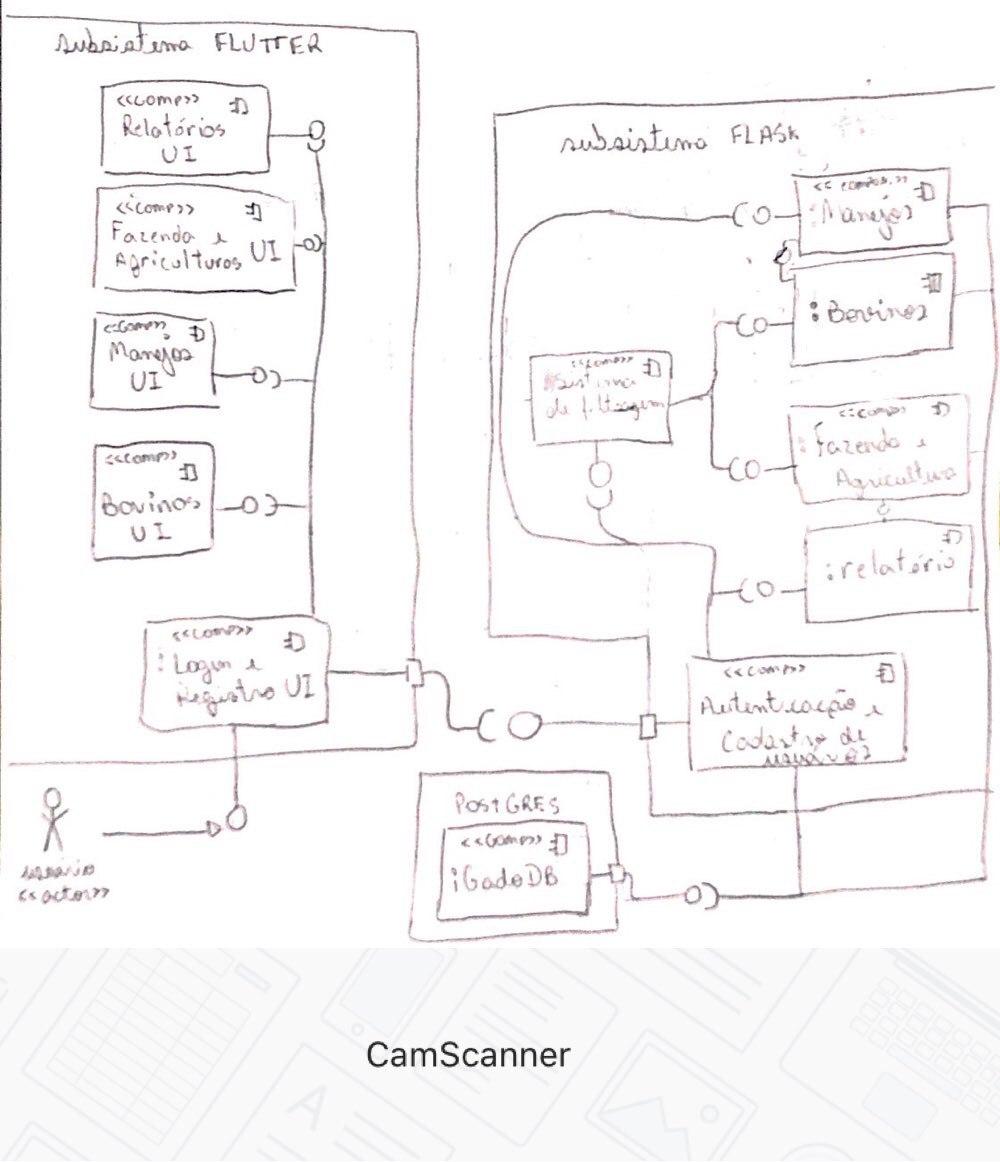 subsistema FLUTTER
<<comp>>
Relatórios
UI
<<comp>>
Fazenda e
Agriculturos UI
<<comp>>
Manejos
UI
<<comp>>
Bovinos
UI
<<comp>>
: Login e
Registro UI
usuário
<<actor>>
subsistema FLASK
<<compon.>>
:Manejos
:Bovinos
<<comp>>
Sistema
de filtragem
<<comp>>
: Fazenda e
Agricultura
:relatório
<<comp>>
Autenticação e
Cadastro de
usuários
PostGRES
<<comp>>
:GadoDB
CamScanner